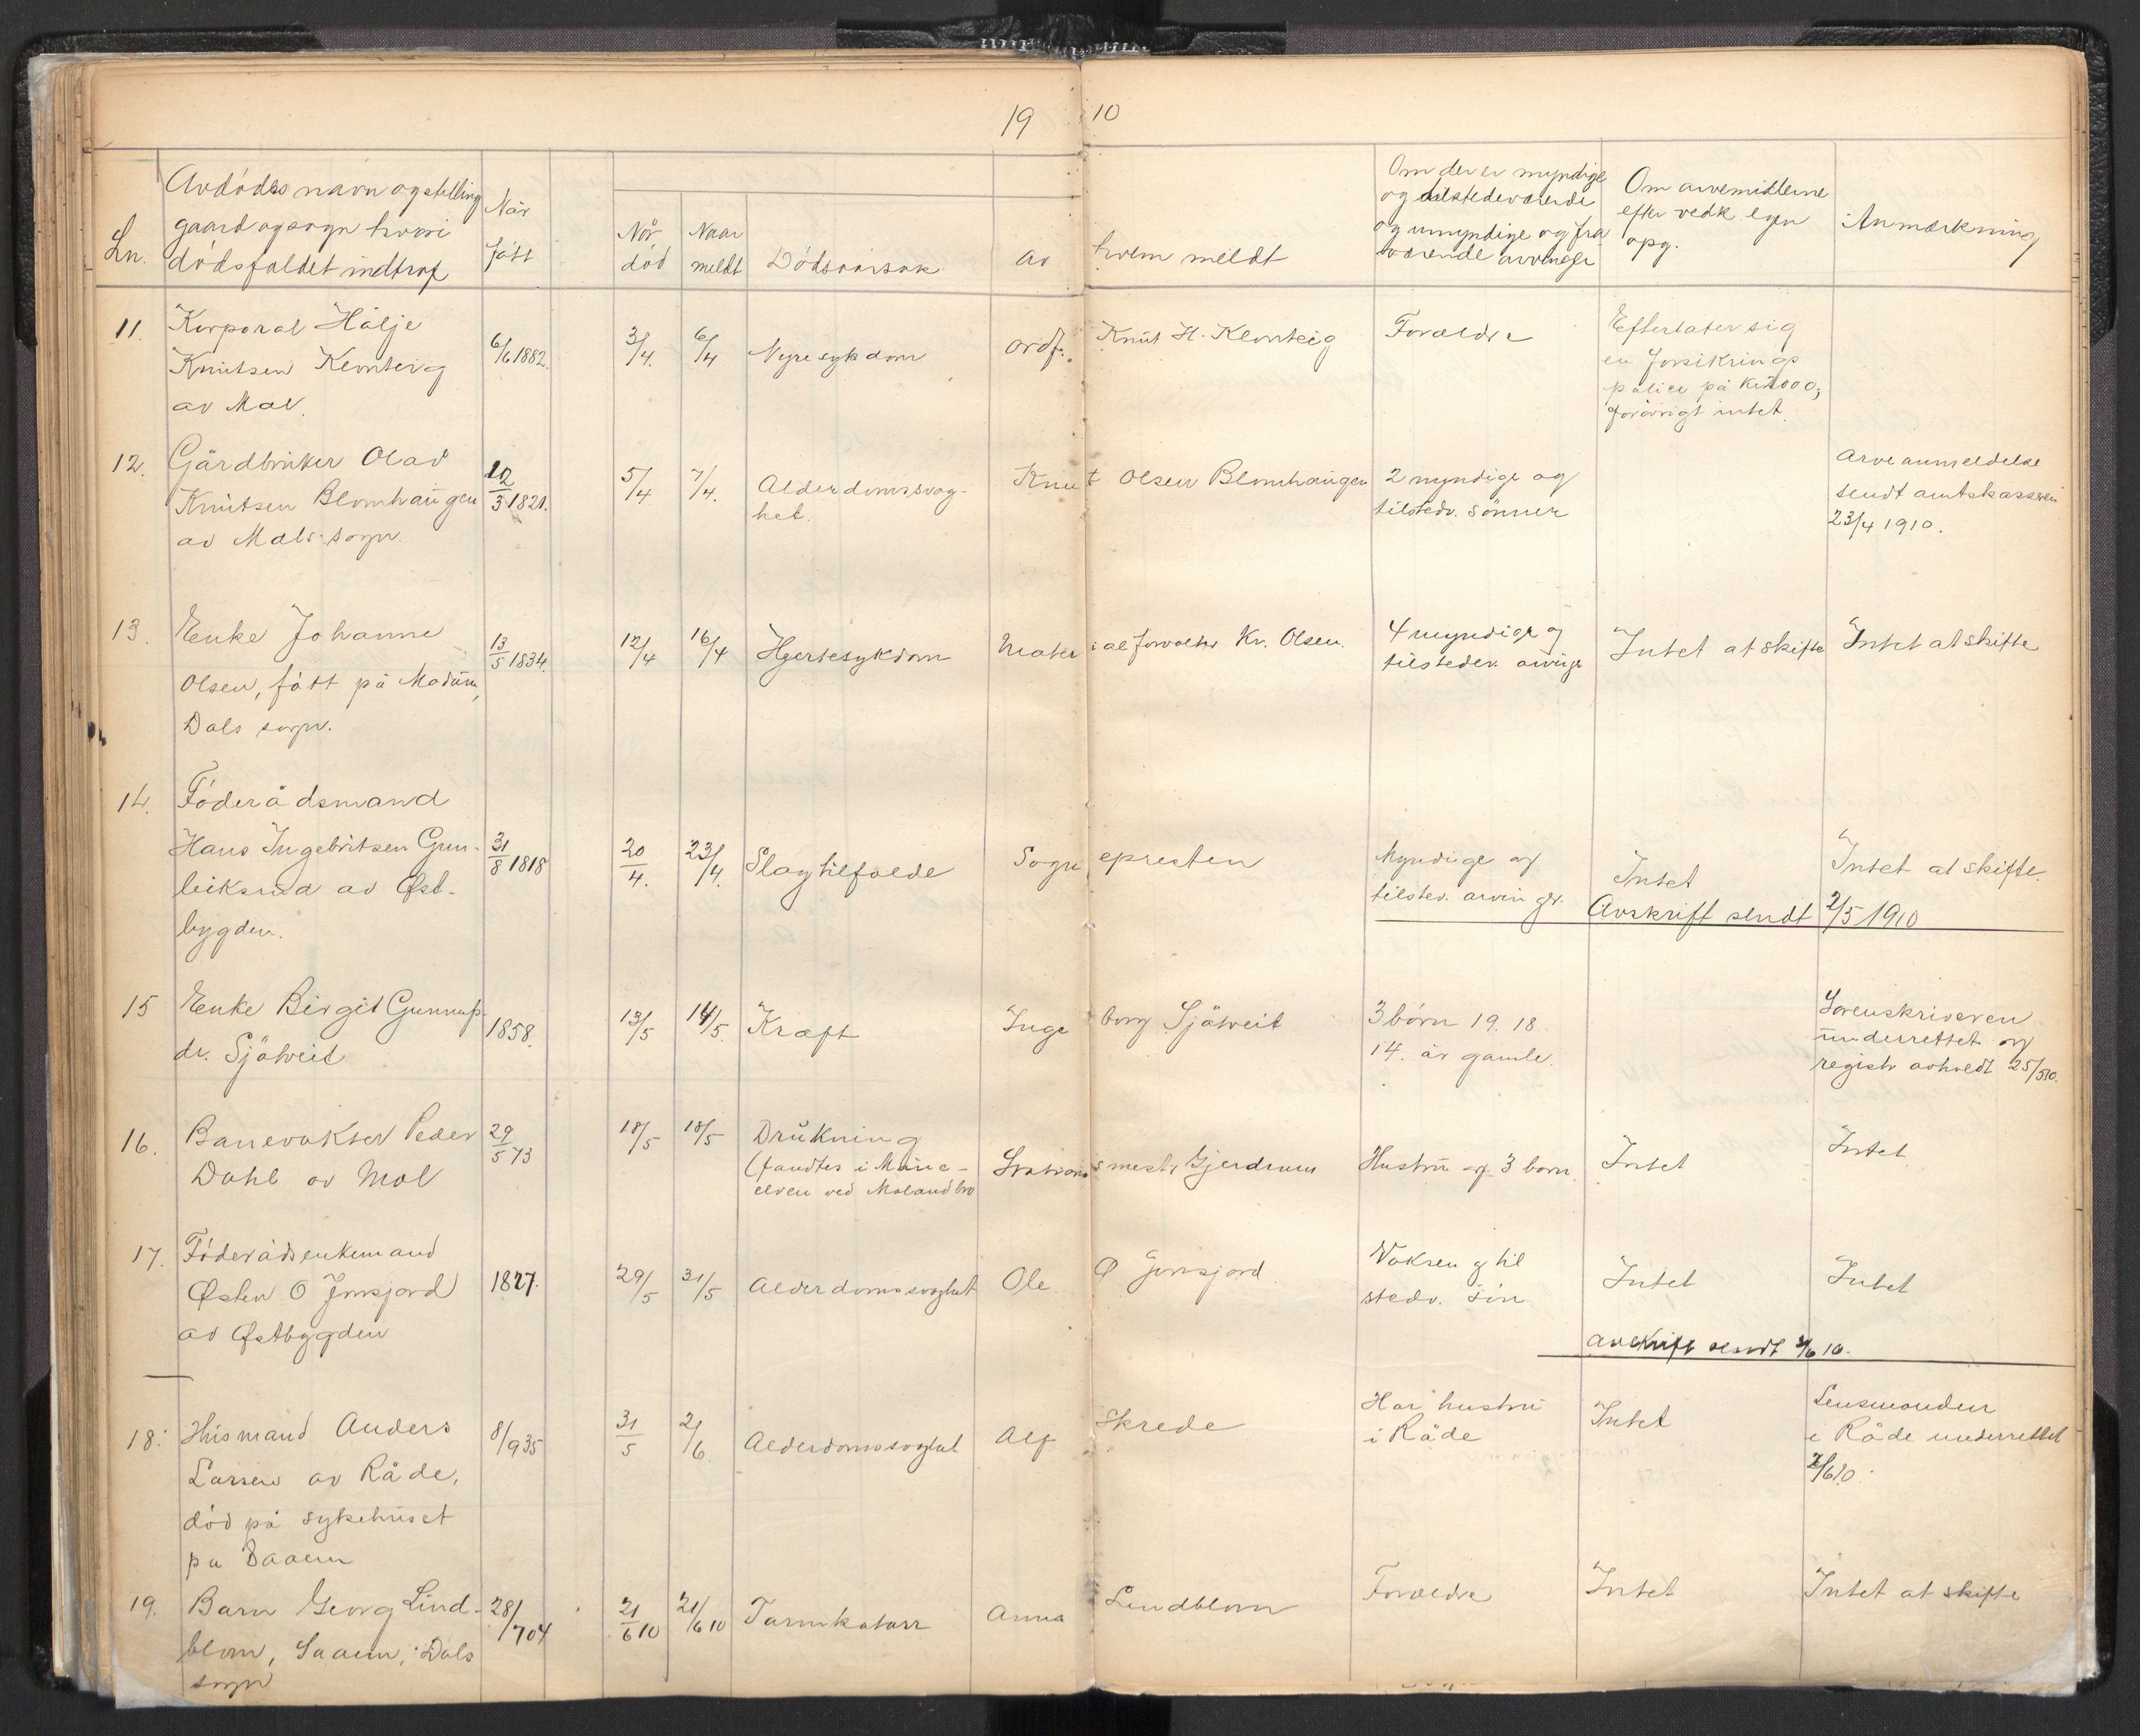 19 10
Ln.
Avdödes navn og stilling
gaard og sogn hvori
dödsfaldet indtraf
Når
födt
Når
död
Naar
meldt
Dödsårsak
av hvem meldt
Om der er myndige
og tilstedeværende
og umyndige og fra
værende arvinger
Om arvemidlerne
efter vedk. egen
opg.
Anmærkning
11. Korporal Hålje
Knutsen Klomteig
av Mæl.
6/6 1882.
3/4.
6/4
Nyresykdom
ordf. Knut H. Klomteig
Forældre
Efterlater sig
en forsikrings
police på kr 1000;
forövrigt intet.
12. Gårdbruker Olav
Knutsen Blomhaugen
av Mæls sogn.
12/3 1821.
5/4
7/4.
Alderdomssvag-
het.
Knut Olsen Blomhaugen
2 myndige og
tilstedv. sönner
Arveanmeldelse
sendt amtskasseren
23/4 1910.
13. Enke Johanne
Olsen, født på Modum,
Dals sogn.
13/5 1834.
12/4
16/4
Hjertesykdom
Materialforvalter Kr. Olsen.
4 myndige og
tilstedev. arvinger
Intet at skifte
Intet at skifte
14. Föderådsmand
Hans Ingebritsen Gun-
leiksrud av Øst-
bygden.
31/8 1818
20/4.
23/4.
Slagtilfælde
Sognepresten
Myndige og
tilstev. arvinger.
Intet
Intet at skifte.
Avskrift sendt 2/5 1910
15 Enke Birgit Gunnufs
dr. Sjåtveit
1858.
13/5
14/5.
Kræft
Ingeborg Sjåtveit
3 börn 19. 18
14. år gamle.
Sorenskriveren
underrettet og
registr avholdt 25/5 10.
16. Banevokter Peder
Dahl av Mæl
29/5 73
18/5
18/5
Drukning
(fandtes i Måne-
elven ved Mæland bro
Stationsmester Gjerdrum
Hustru og 3 barn.
Intet
Intet
17. Föderådsenkemand
Østen O Jonsjord
av Østbygden
1827.
29/5
31/5
Alderdomssvaghet
Ole Ø Jonsjord
Voksen og til
stedv. sön
Intet
Intet
avskrift sendt 2/6 10.
18. Husmand Anders
Larsen av Råde,
död på sykehuset
på Saaem
8/9 35
31/5
2/6
Alderdomssvaghet
Alf Skrede
Har hustru
i Råde
Intet
Lensmanden
i Råde underrettet
2/6 10.
19. Barn Georg Lind-
blom, Saaem, Dals
sogn
28/7 04
21/6 10
21/6 10
Tarmkatarr
Anna Lindblom
Forældre
Intet
Intet at skifte